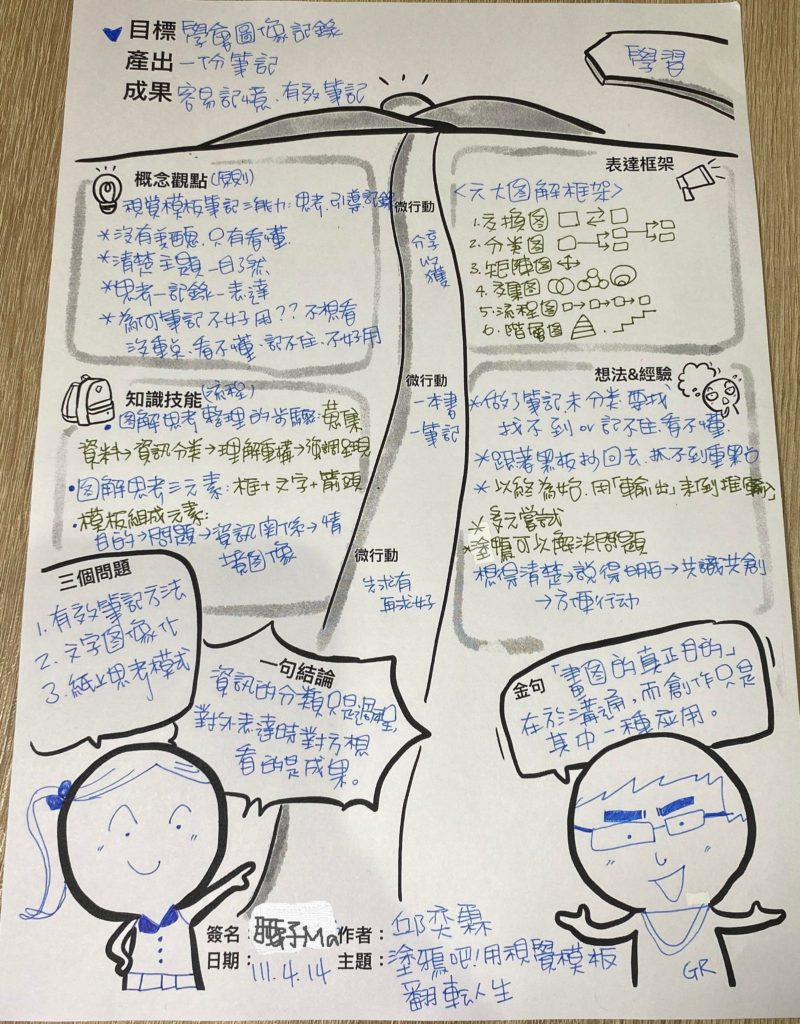 目標 學會圖像記錄
產出 一份筆記
成果 容易記憶.有效筆記
學習
概念觀點(原則)
視覺模板筆記三能力:思考.引導.記錄
*沒有美醜.只有看懂.
*清楚主題一目了然
*思考-記錄-表達
*為何筆記不好用??不想看
沒重點.看不懂.記不住.不好用
微行動
分享
以
獲
表達框架
<六大図解框架>
1.交換図
2.分类図
3.矩陣図
4.交集図
5.流程図
6.階層図
知識技能(流程)
•図解思考整理的步驟:蒐集
資料→資訊分类→理解重構→強調呈現
•図解思考三元素:框+文字+箭頭
•模板組成元素:
目的→問題→資訊関係→情
境圖像
微行動
一本書
一筆記
想法&經驗
*做了筆記未分类要找
找不到or記不住.看不懂.
*跟著黑板抄回去.抓不到重點
*以終為始.用「輸出」來倒推「輸入」
*多元嘗試
*塗鴨可以解決問題
想得清楚→說得明白→共識共創
→方便行动
微行動
先求有
再求好
三個問題
1.有效筆記方法
2.文字圖像化
3.紙上思考模式
一句結論
資訊的分類只是過程,
對外表達時對方想
看的是成果。
金句「畫図的真正目的」
在於溝通,而創作只是
其中一種應用。
簽名: 腰子Ma 作者: 邱奕霖
日期: 111.4.14 主題: 塗鴉吧!用視覺模板
翻転人生
GR